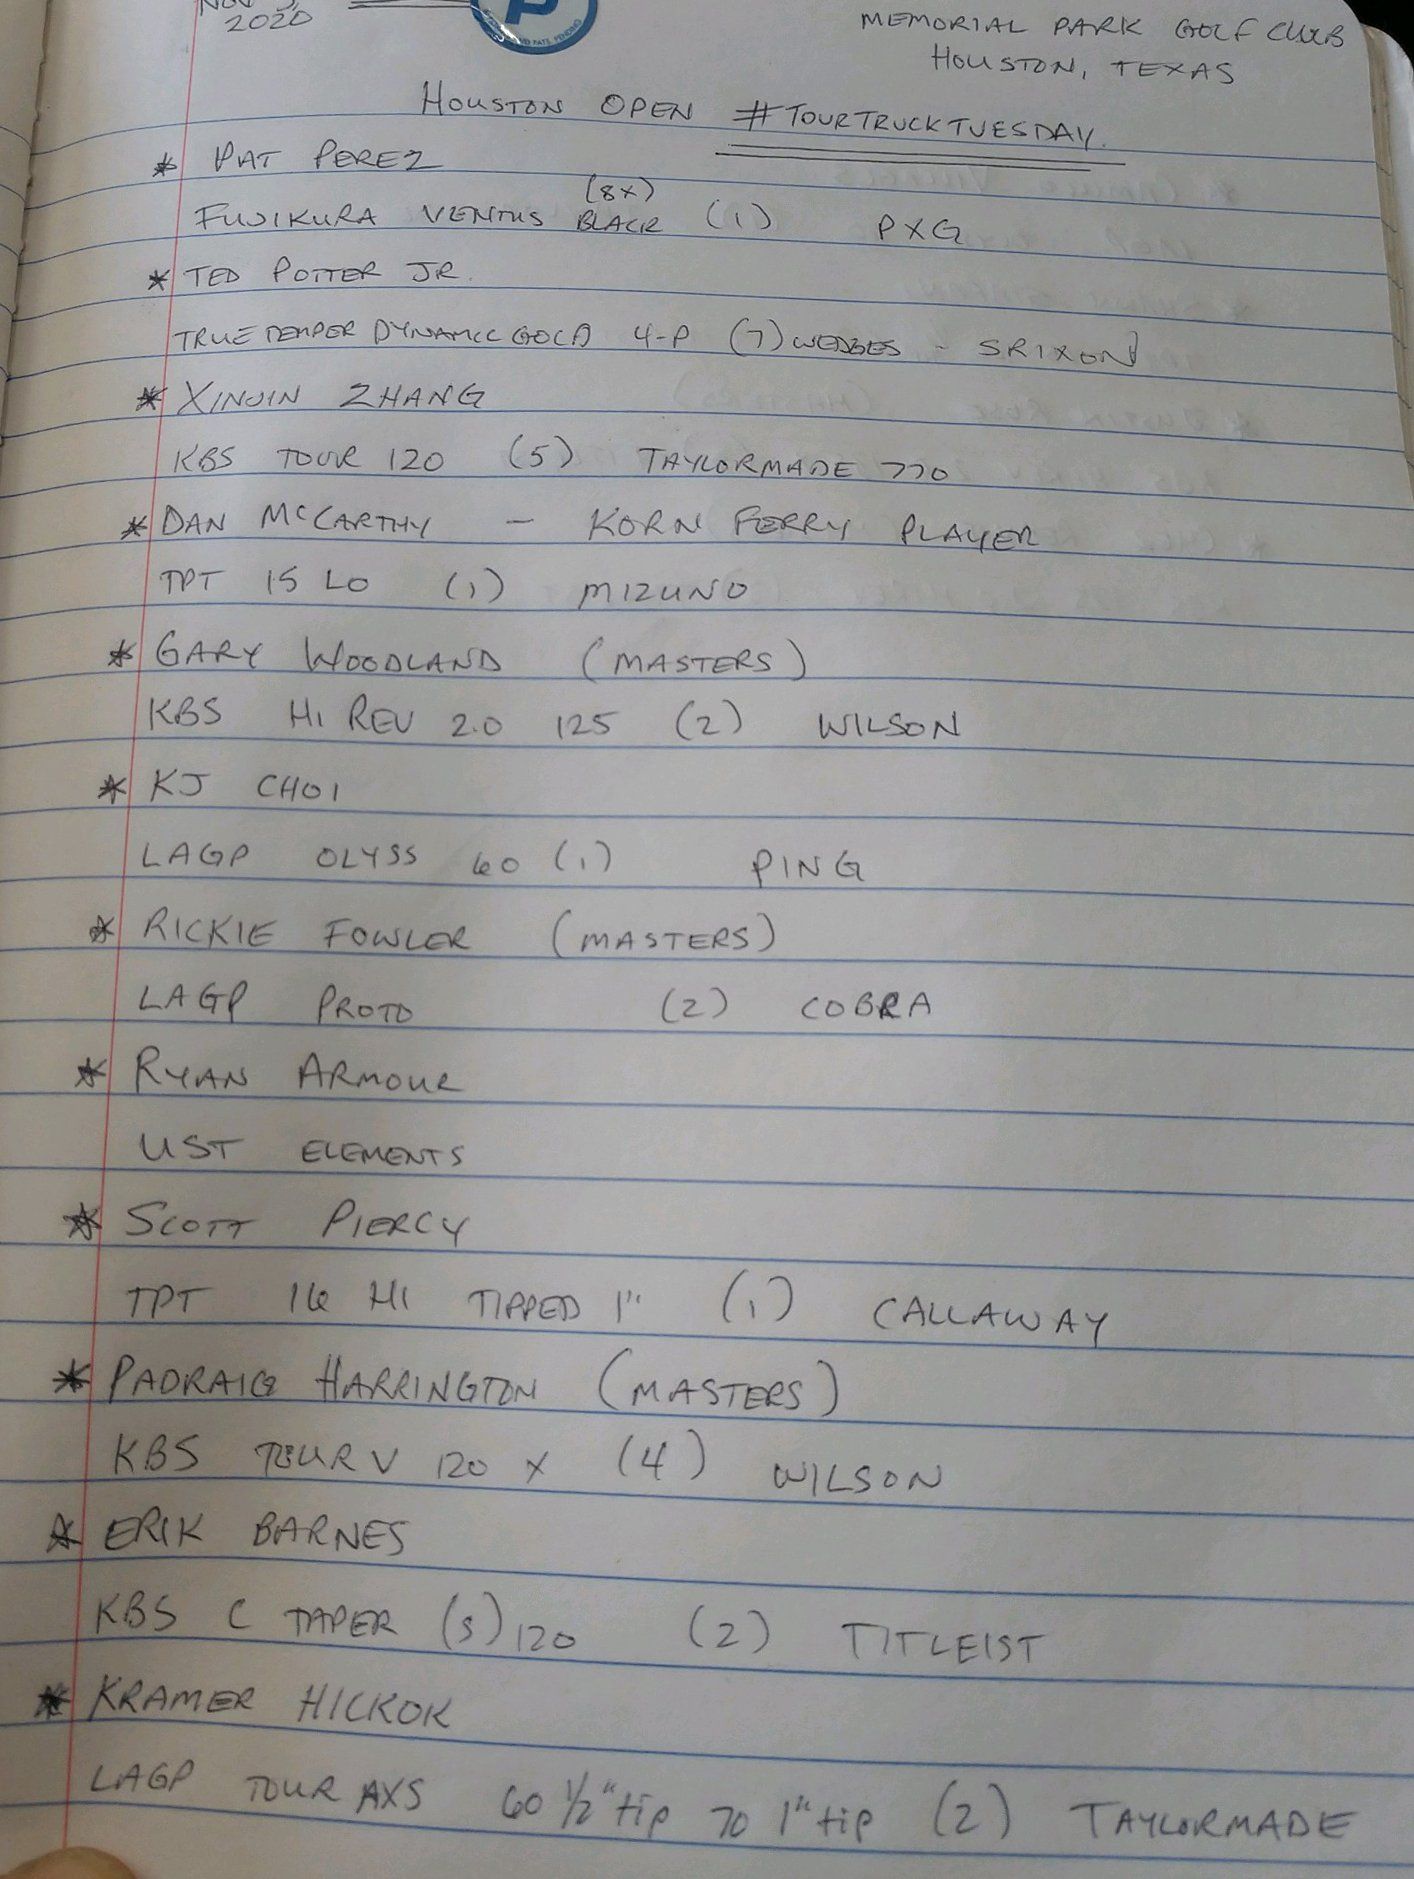 NOV 3, 2020
MEMORIAL PARK GOLF CLUB
HOUSTON, TEXAS
HOUSTON OPEN #TOURTRUCKTUESDAY.
* PAT PEREZ
FUJIKURA VENTUS BLACK (8X) (1) PXG
* TED POTTER JR.
TRUE TEMPER DYNAMIC GOLD 4-P (7) WEDGES - SRIXON
* XINJIN ZHANG
KBS TOUR 120 (5) TAYLORMADE 770
* DAN MCCARTHY - KORN FERRY PLAYER
TPT 15 LO (1) MIZUNO
* GARY WOODLAND (MASTERS)
KBS HI REV 2.0 125 (2) WILSON
* KJ CHOI
LAGP OLYSS 60 (1) PING
* RICKIE FOWLER (MASTERS)
LAGP PROTO (2) COBRA
* RYAN ARMOUR
UST ELEMENTS
* SCOTT PIERCY
TPT 16 HI TIPPED 1" (1) CALLAWAY
* PADRAIG HARRINGTON (MASTERS)
KBS TOUR V 120 X (4) WILSON
* ERIK BARNES
KBS C TAPER (S) 120 (2) TITLEIST
* KRAMER HICKOK
LAGP TOUR AXS 60 1/2" tip 70 1" tip (2) TAYLORMADE